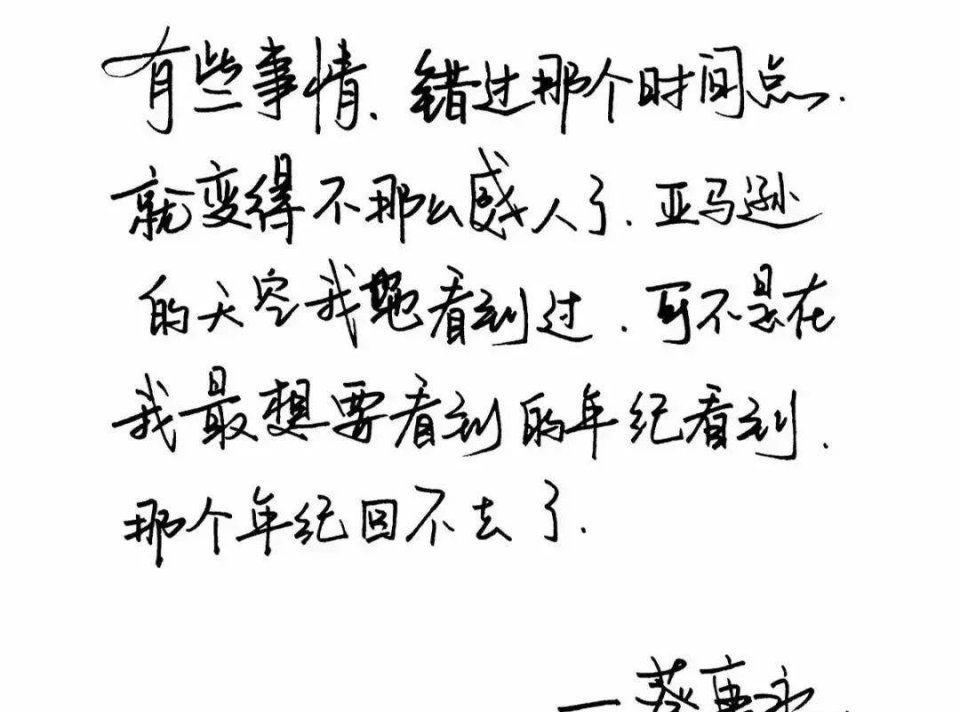 有些事情、错过那个时间点.
就变得不那么感人了.亚马逊
的天空我看到过.可不是在
我最想要看到的年纪看到.
那个年纪回不去了.
—蔡康永